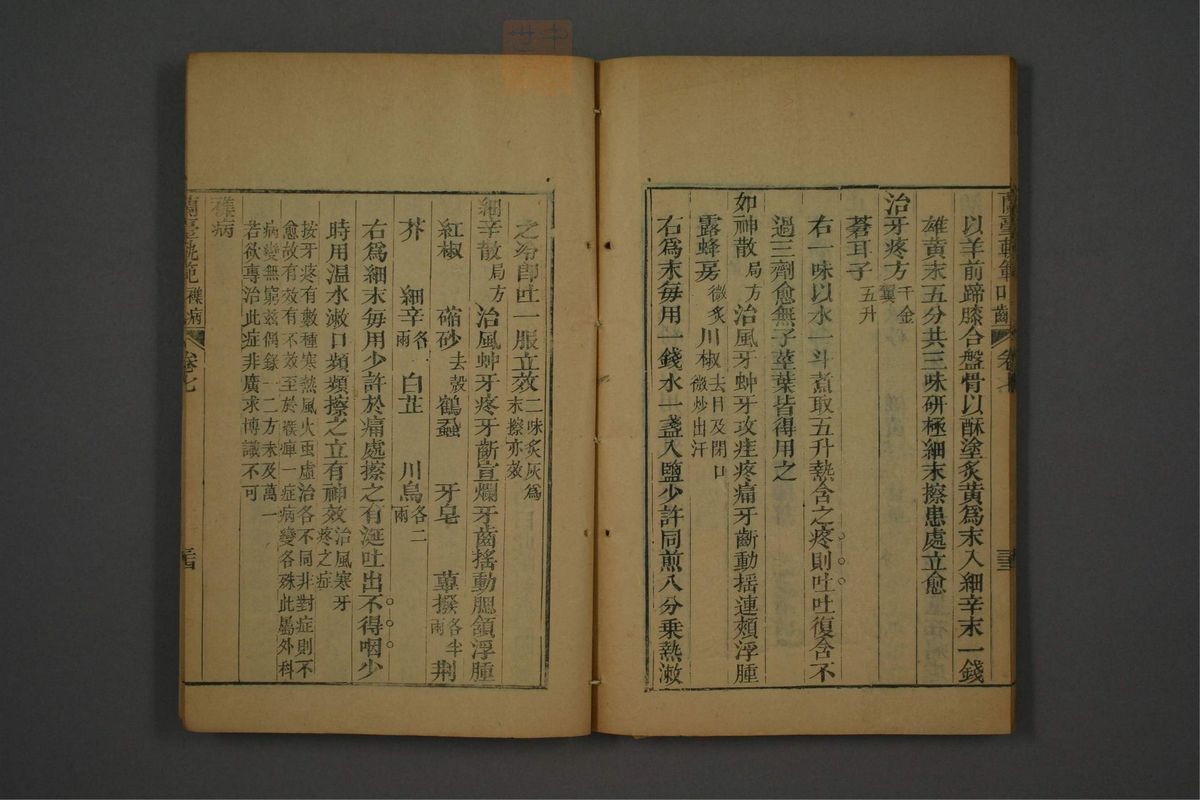 蘭臺軌範 口齒 卷七 三三
以羊前蹄膝合盤骨以酥塗炙黃爲末入細辛末一錢
雄黃末五分共三味研極細末擦患處立愈
治牙疼方千金翼
蒼耳子五升
右一味以水一斗煮取五升熱含之疼則吐吐復含不
過三劑愈無子莖葉皆得用之
如神散局方 治風牙蚛牙攻疰疼痛牙齗動搖連頰浮腫
露蜂房微炙 川椒去目及閉口微炒出汗
右爲末每用一錢水一盞入鹽少許同煎八分乘熱漱
之冷即吐一服立效二味炙灰爲末擦亦效
細辛散局方 治風蚛牙疼牙齗宣爛牙齒搖動腮頷浮腫
紅椒 縮砂去殼 鶴蝨 牙皂 蓽撥各半兩 荆
芥 細辛各兩 白芷 川烏各二兩
右爲細末每用少許於痛處擦之有涎吐出不得咽少
時用温水漱口頻頻擦之立有神效治風寒牙疼之症
按牙疼有數種寒熱風火虫虛治各不同非對症則不
愈故有有效有不效至於喉痺一症病變各殊此屬外科
病變無窮茲偶錄一二方未及萬一
若欲專治此症非廣求博識不可
襍病
蘭臺軌範 襍病 卷七 三四